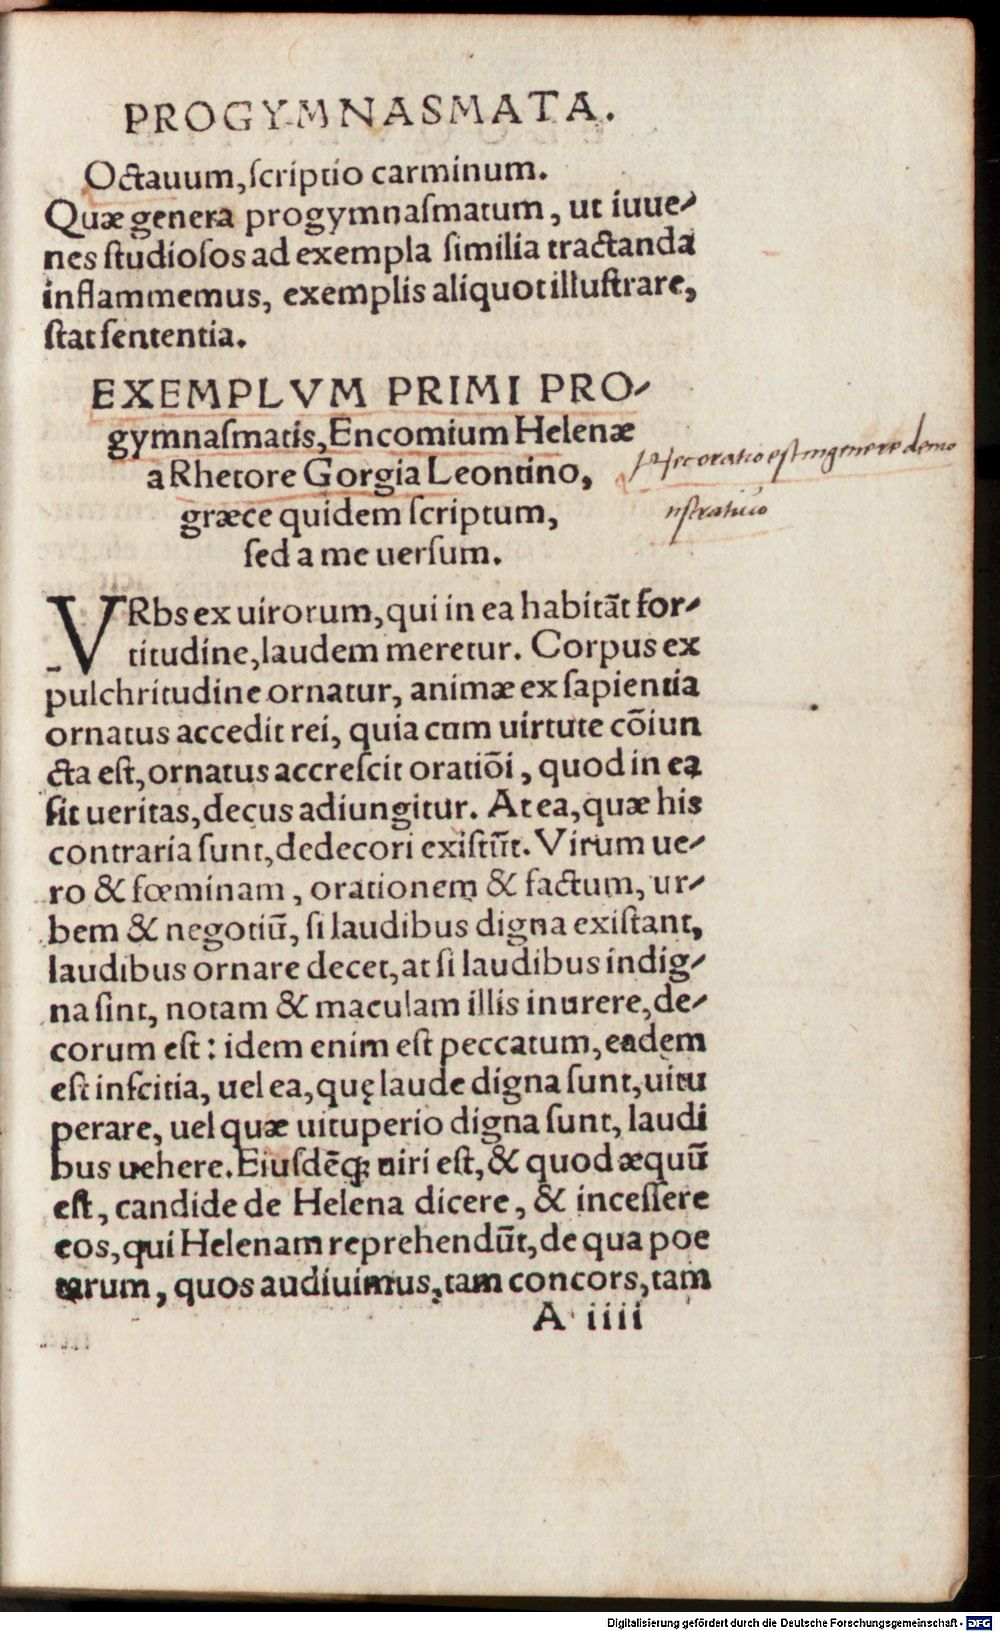 PROGYMNASMATA.
Octauum, ſcriptio carminum.
Quæ genera progymnaſmatum, ut iuue-
nes ſtudioſos ad exempla ſimilia tractanda
inflammemus, exemplis aliquot illuſtrare,
ſtat ſententia.
EXEMPLVM PRIMI PRO-
gymnaſmatis, Encomium Helenæ
a Rhetore Gorgia Leontino,
græce quidem ſcriptum,
ſed a me uerſum.
Hec oratio est in genere demo
nstratiuo
VRbs ex uirorum, qui in ea habitāt for-
titudine, laudem meretur. Corpus ex
pulchritudine ornatur, animæ ex ſapientia
ornatus accedit rei, quia cum uirtute cōiun
cta eſt, ornatus accreſcit oratiōi, quod in ea
ſit ueritas, decus adiungitur. At ea, quæ his
contraria ſunt, dedecori exiſtūt. Virum ue-
ro & fœminam, orationem & factum, ur-
bem & negotiū, ſi laudibus digna exiſtant,
laudibus ornare decet, at ſi laudibus indig-
na ſint, notam & maculam illis inurere, de-
corum eſt: idem enim eſt peccatum, eadem
eſt inſcitia, uel ea, quę laude digna ſunt, uitu
perare, uel quæ uituperio digna ſunt, laudi
bus uehere. Eiuſdēq; uiri eſt, & quod æquū
eſt, candide de Helena dicere, & inceſſere
eos, qui Helenam reprehendūt, de qua poe
tarum, quos audiuimus, tam concors, tam
A iiii
Digitalisierung gefördert durch die Deutsche Forschungsgemeinschaft - DFG